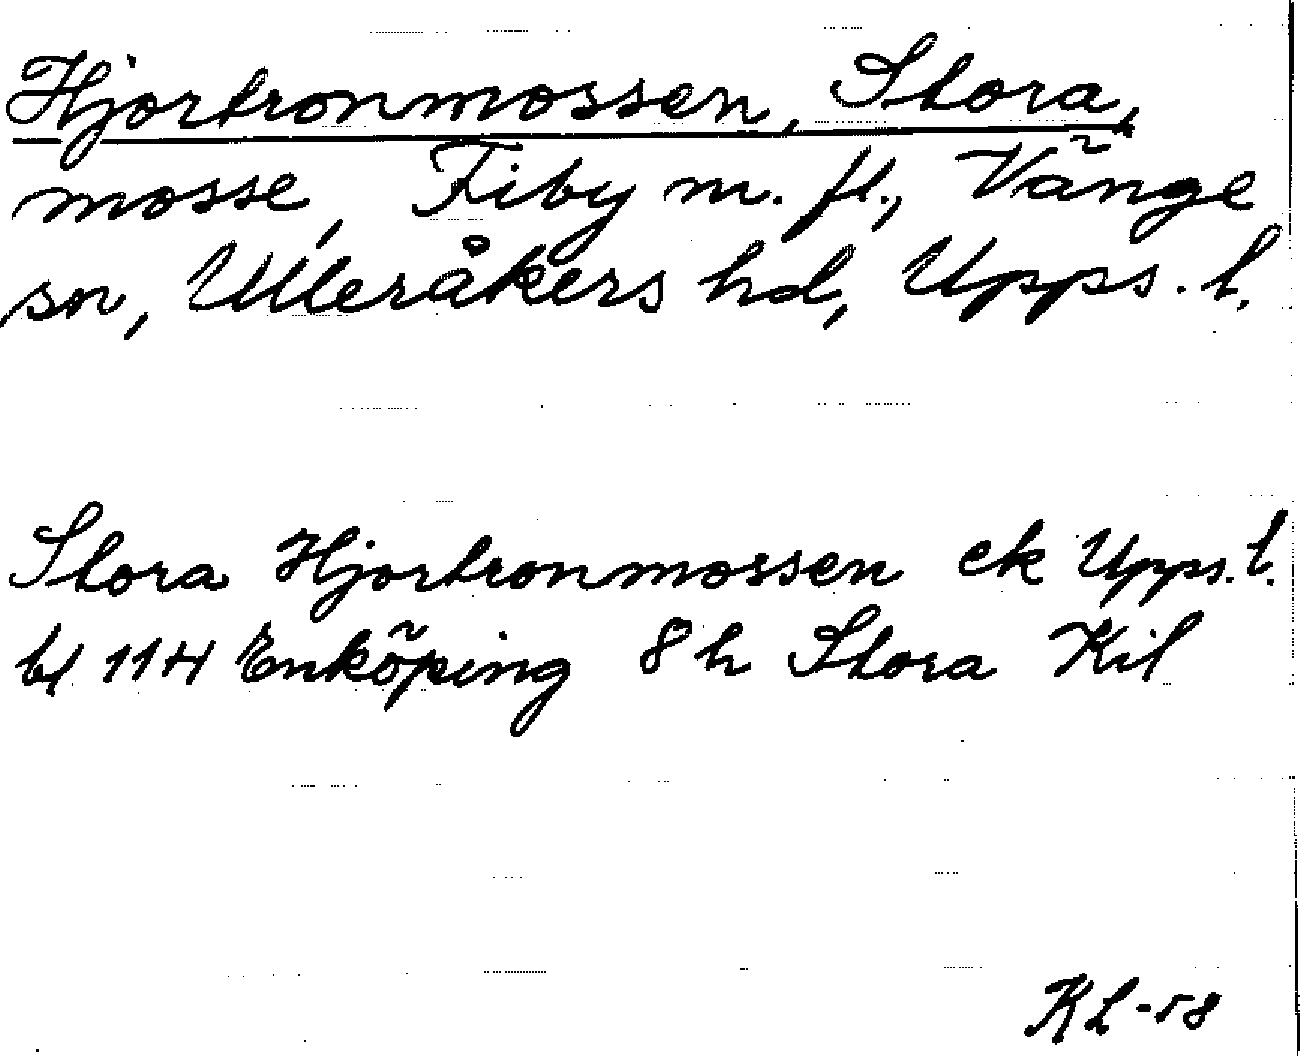 Hjortronmossen, Stora,
mosse, Fiby m. fl., Vänge
sn, Ulleråkers hd, Upps. l.
Stora Hjortronmossen ek Upps. l.
bl 11H Enköping 8h Stora Kil
KL-58